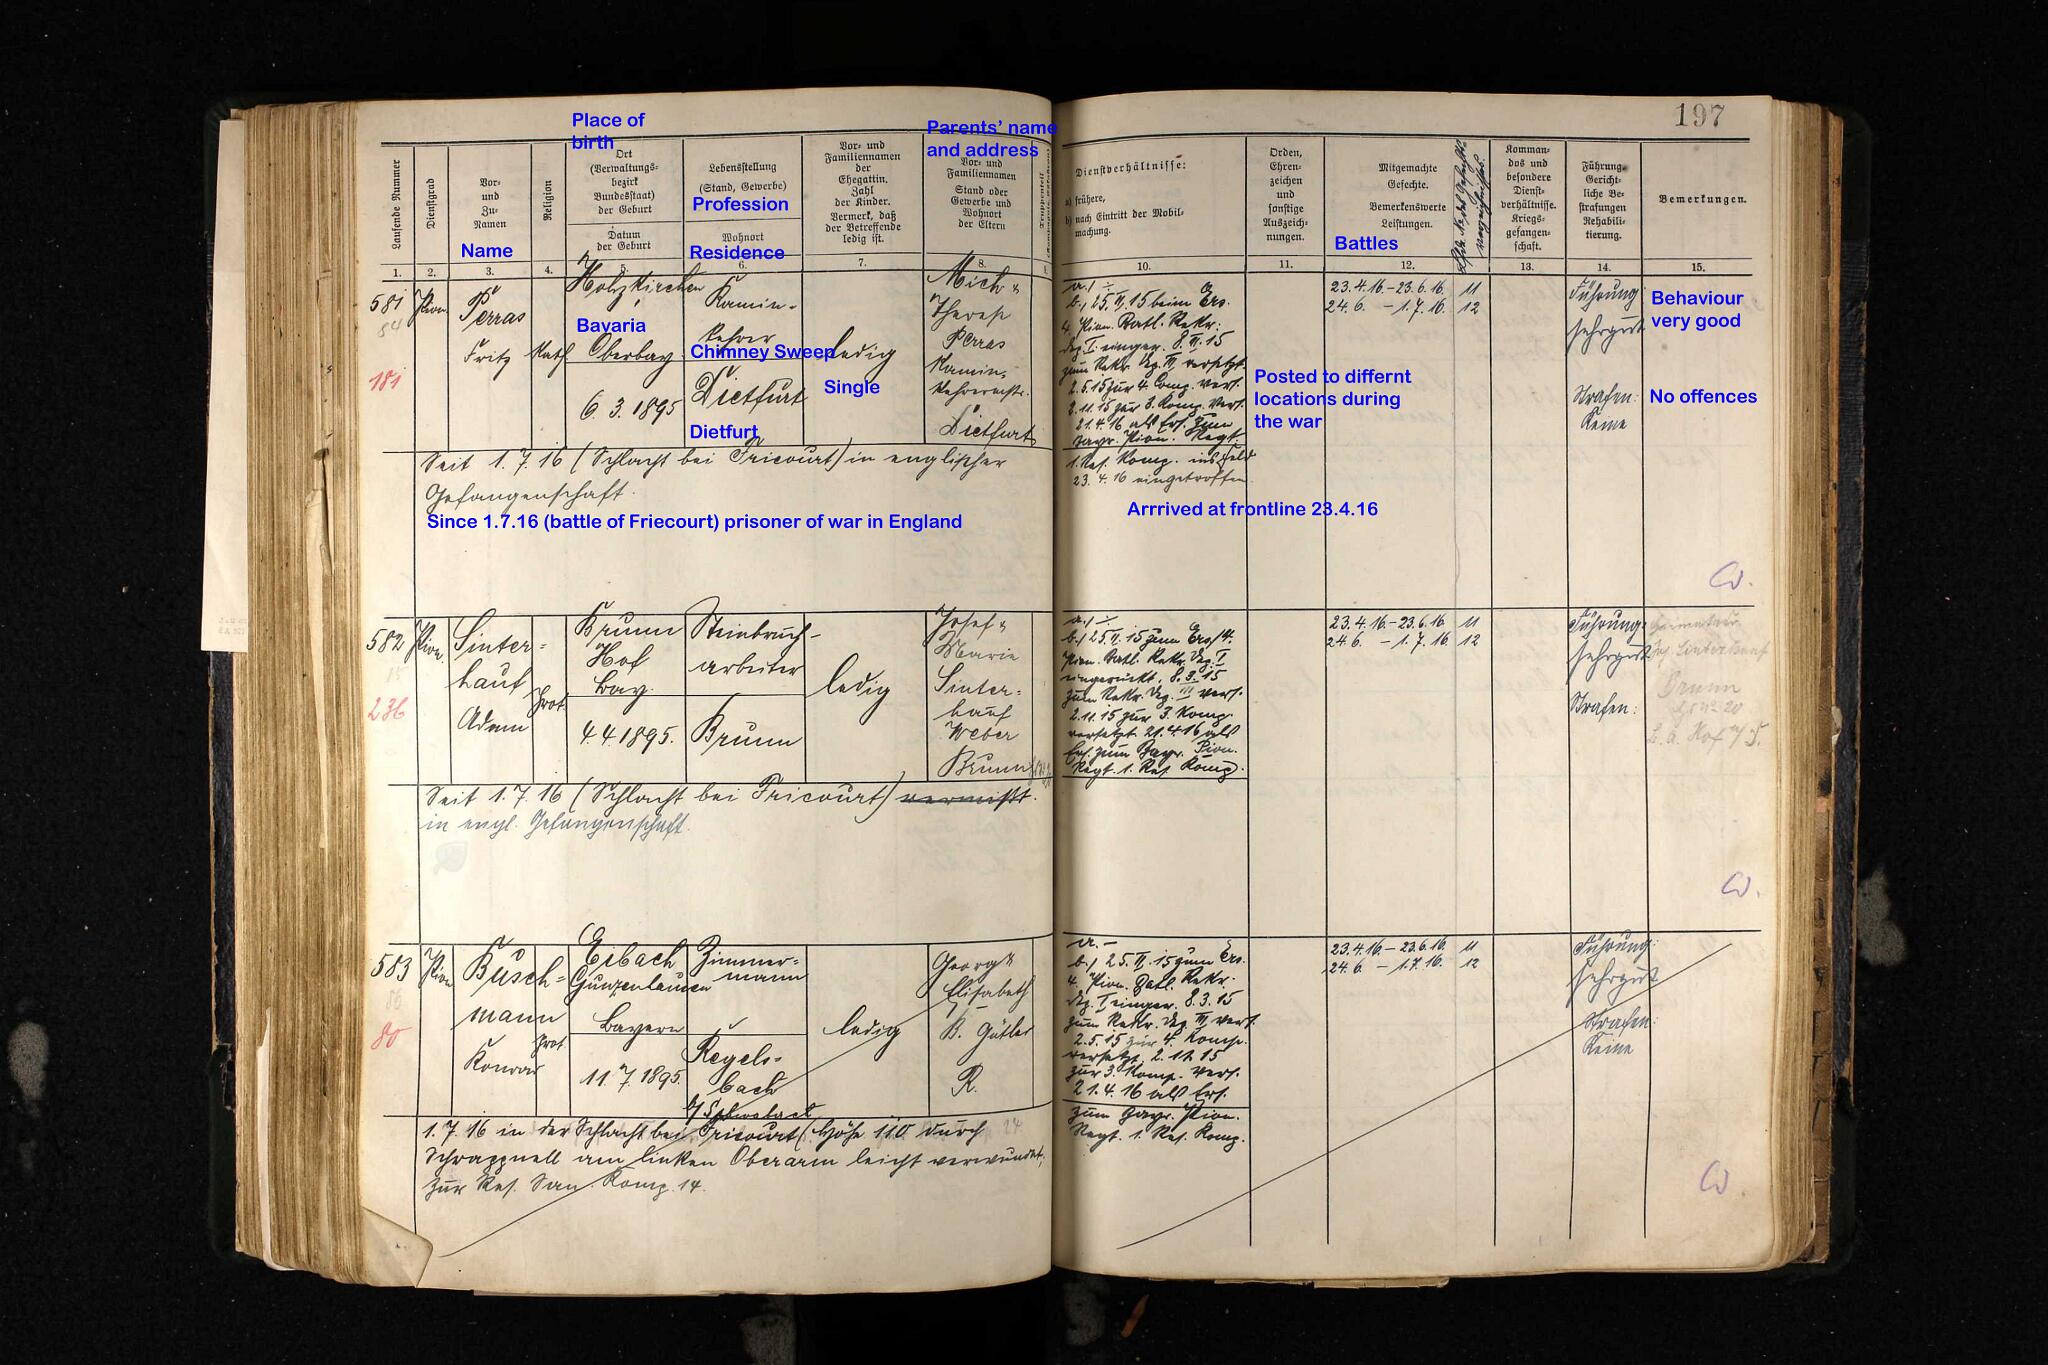 197
Place of
birth
Parents' name
and address
Laufende Nummer
Dienstgrad
Vor-
und
Zu-
Namen
Name
Religion
Ort
(Verwaltungs-
bezirk
Bundesstaat)
der Geburt
Datum
der Geburt
Lebensstellung
(Stand, Gewerbe)
Profession
Wohnort
Residence
Vor- und
Familiennamen
der
Ehegattin.
Zahl
der Kinder.
Vermerk, daß
der Betreffende
ledig ist.
Vor- und
Familiennamen
Stand oder
Gewerbe und
Wohnort
der Eltern
Dienstverhältnisse:
a) frühere,
b) nach Eintritt der Mobil-
machung.
Orden,
Ehren-
zeichen
und
sonstige
Auszeich-
nungen.
Mitgemachte
Gefechte.
Bemerkenswerte
Leistungen.
Battles
Komman-
dos und
besondere
Dienst-
verhältnisse.
Kriegs-
gefangen-
schaft.
Führung.
Gericht-
liche Be-
strafungen
Rehabili-
tierung.
Bemerkungen.
1. 2. 3. 4. 5. 6. 7. 8. 10. 11. 12. 13. 14. 15.
581
84
181
Pion.
Perras
Fritz
Kath.
Holzkirchen
Bavaria
Oberbay.
6. 3. 1895
Kamin-
kehrer
Chimney Sweep
Dietfurt
Dietfurt
ledig
Single
Mich &
Therese
Perras
Kamin-
kehrermstr.
Dietfurt
a.) ÷
b.) 25. II. 15 beim Ers.
4. Pion. Batl. Rekr.
Dep. I. einger. 8. III. 15
zum Rekr. Dep. III versetzt
2.5.15 zur 4. Comp. vers.
2.11.15 zur 3. Komp. vers.
21.4.16 als Ers. zum
bayr. Pion. Regt.
1. Res. Komp. ins Feld
23. 4. 16 eingetroffen
Posted to differnt
locations during
the war
Arrrived at frontline 23.4.16
23.4.16 – 23.6.16. 11
24.6. – 1.7.16. 12
Führung
sehr gut
Strafen:
Keine
Behaviour
very good
No offences
Seit 1.7.16 (Schlacht bei Fricourt) in englischer
Gefangenschaft.
Since 1.7.16 (battle of Friecourt) prisoner of war in England
582
236
Pion.
Sinter-
hauf
Adam
Prot.
Brunn
Hof
Bay.
4.4.1895.
Steinbruch-
arbeiter
Brunn
ledig
Josef &
Marie
Sinter-
hauf
Weber
Brunn
a.) ÷
b.) 25. II. 15 zum Ers. 4.
Pion. Batl. Rekr. Dep. I
eingerückt. 8. 3. 15
zum Rekr. Dep. III vers.
2.11.15 zur 3. Komp.
versetzt 21.4.16 als
Ers. zum Bayr. Pion.
Regt. 1. Res. Komp.
23.4.16. – 23.6.16 11
24.6. – 1.7.16. 12
Führung:
sehr gut
Strafen:
Brunn
Hof
Seit 1.7.16 (Schlacht bei Fricourt) vermißt.
in engl. Gefangenschaft.
583
80
Pion
Busch-
mann
Konrad
Prot
Eibach
Gunzenhausen
Bayern
11. 7. 1895.
Zimmer-
mann
Regels-
bach
b/ Schwabach
ledig
Georg &
Elisabeth
B. Gütler
R.
a. –
b.) 25. II. 15 zum Ers.
4. Pion. Batl. Rekr.
Dep. I einger. 8.3.15
zum Rekr. Dep. III vers.
2.5.15 zur 4. Komp.
versetzt. 2. 11. 15
zur 3. Komp. vers.
21.4.16 als Ers.
zum Bayr. Pion.
Regt. 1. Res. Komp.
23.4.16 – 23.6.16. 11
24.6. – 1.7.16. 12
Führung:
sehr gut
Strafen:
Keine
1.7.16 in der Schlacht bei Fricourt (Höhe 110 durch
Schrappnell am linken Oberarm leicht verwundet;
zur Res. San. Komp. 14.